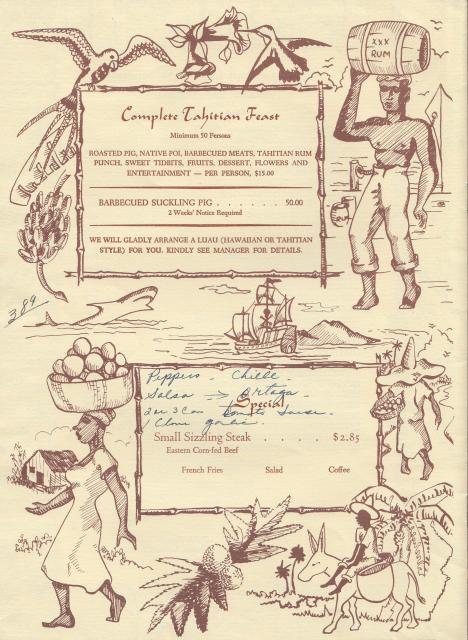 XXX
RUM
Complete Tahitian Feast
Minimum 50 Persons
ROASTED PIG, NATIVE POI, BARBECUED MEATS, TAHITIAN RUM
PUNCH, SWEET TIDBITS, FRUITS, DESSERT, FLOWERS AND
ENTERTAINMENT — PER PERSON, $15.00
BARBECUED SUCKLING PIG . . . . . . 50.00
2 Weeks' Notice Required
WE WILL GLADLY ARRANGE A LUAU (HAWAIIAN OR TAHITIAN
STYLE) FOR YOU. KINDLY SEE MANAGER FOR DETAILS.
389
Peppers - Chille
Salsa → Ortega
Special
2 or 3 Can Tomato Sauce.
1 Clove garlic
Small Sizzling Steak . . . . $2.85
Eastern Corn-fed Beef
French Fries Salad Coffee